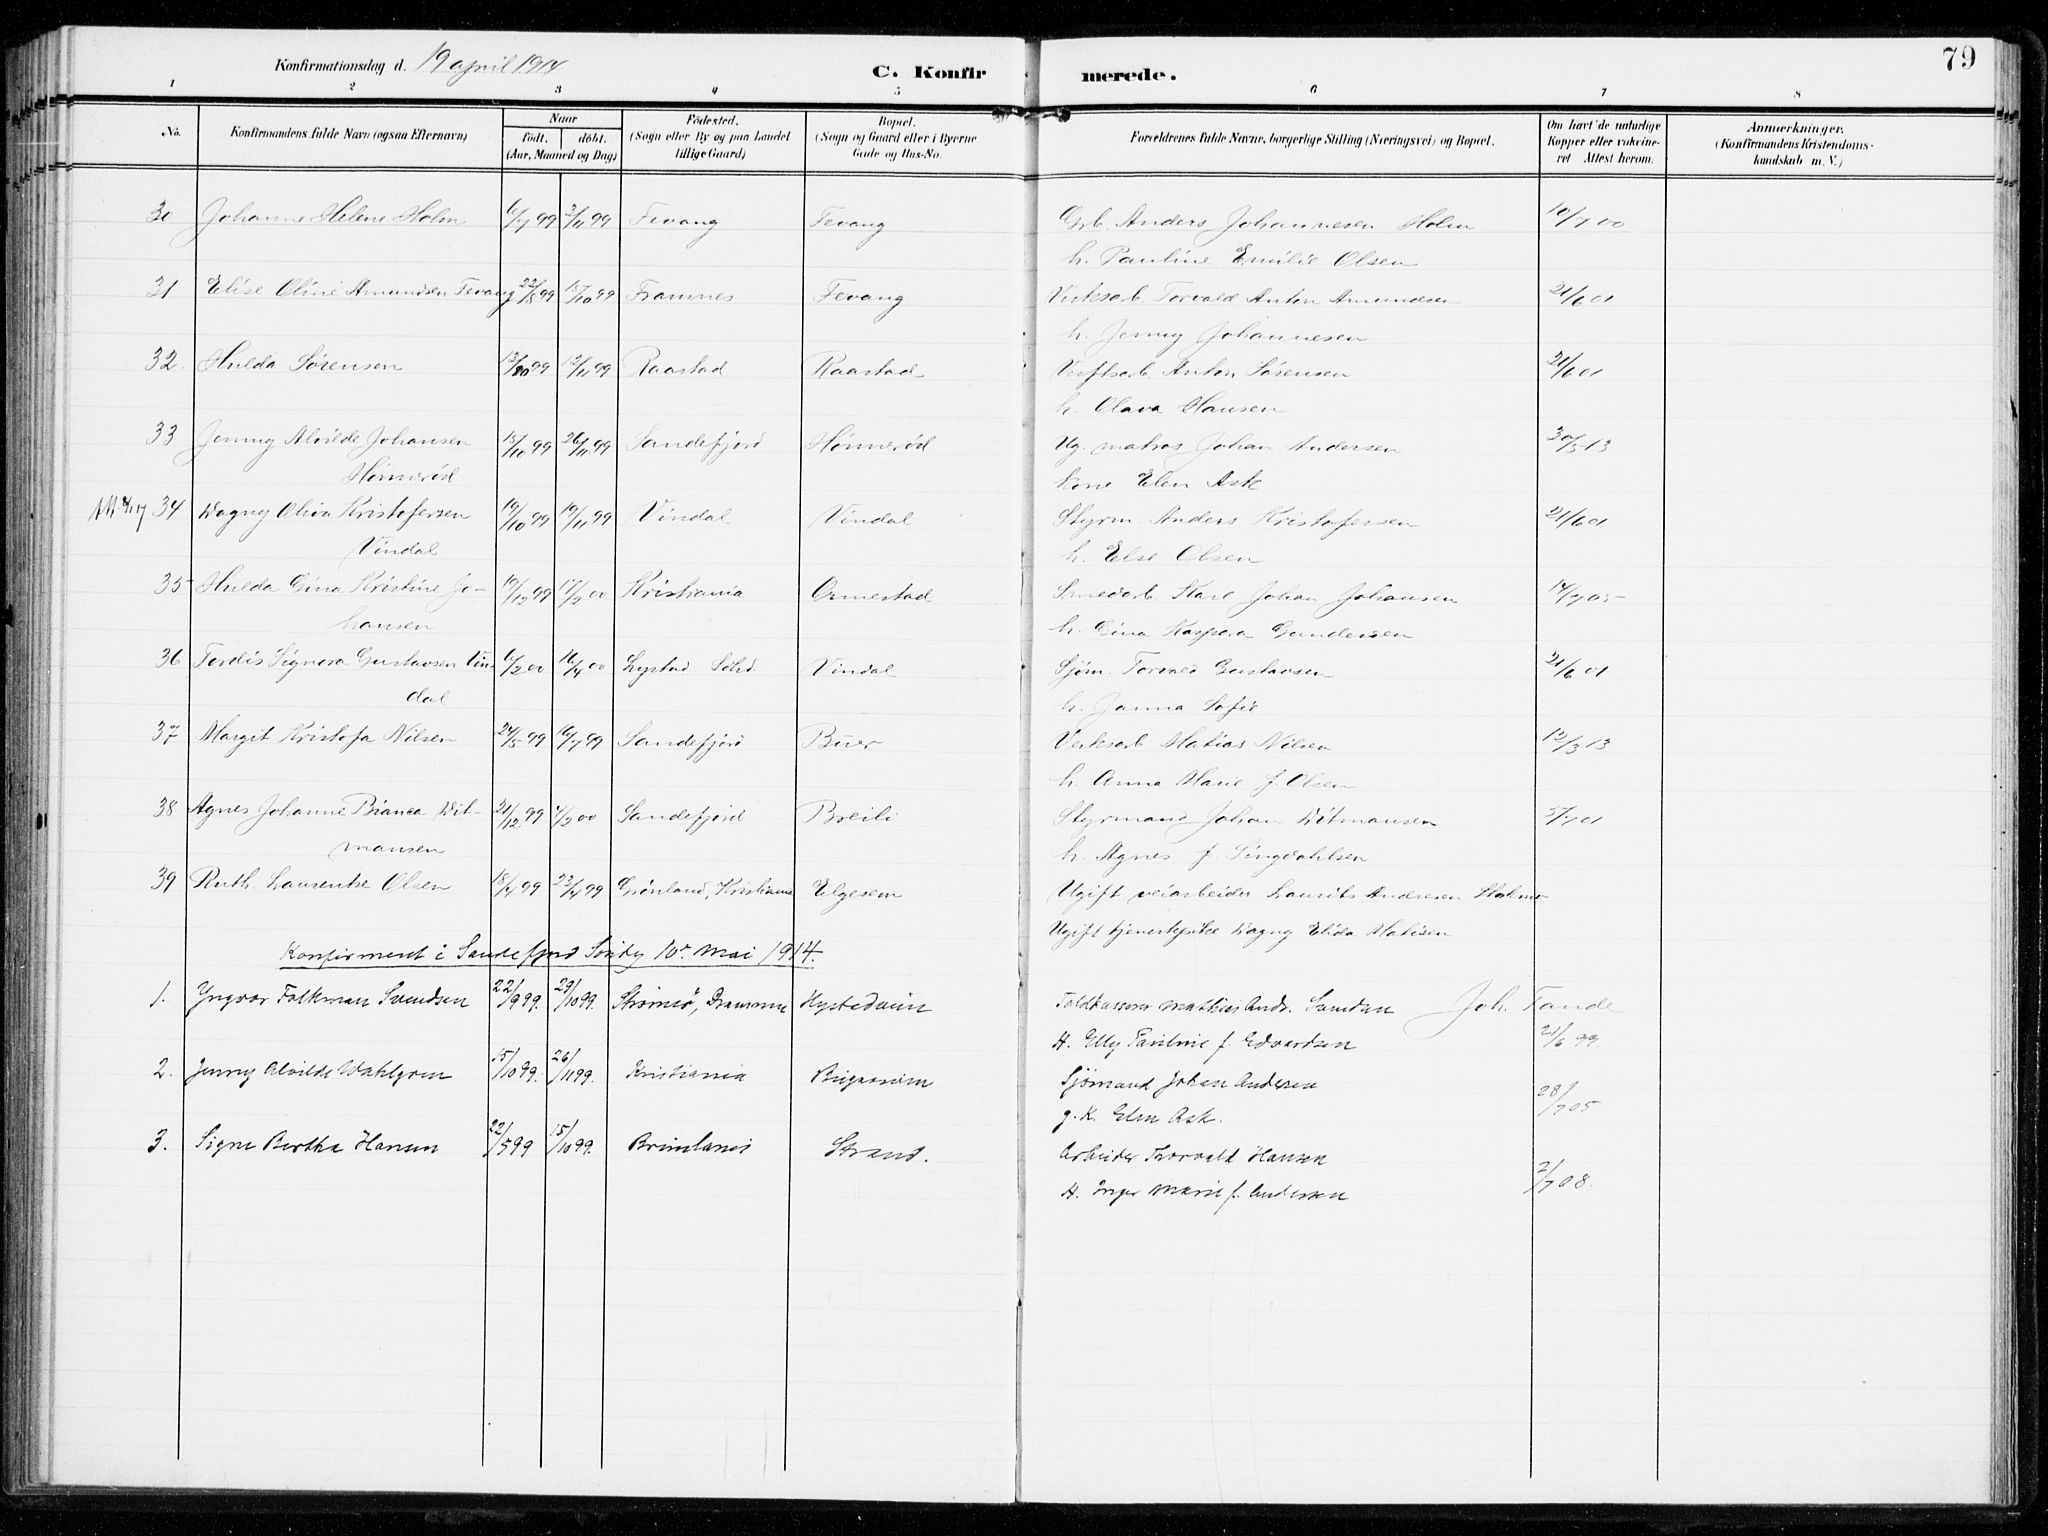 79
Konfirmationsdag d. 19 april 1914
C. Konfirmerede.
1 2 3 4 5 6 7 8
No. Konfirmandens fulde Navn (ogsaa Efternavn) Naar født. døbt. (Aar, Maaned og Dag) Födested. (Sogn eller By og paa Landet tillige Gaard) Bopæl. (Sogn og Gaard eller i Byerne Gade og Hus-No. Forældrenes fulde Navne, borgerlige Stilling (Næringsvei) og Bopæl. Om havt de naturlige Kopper eller vakcineret Attest herom. Anmærkninger, (Konfirmandens Kristendomskundskab m. V.)
30 Johanne Helene Holm 6/7 99 3/11 99 Fevang Fevang Grb. Anders Johannesen Holm 10/7 00
h. Pauline Emilie Olsen
31 Elise Oline Amundsen Fevang 22/8 99 15/10 99 Framnes Fevang Verksarb Torvald Anton Amundsen 21/6 01
h. Jenny Johannesen
32. Hulda Sørensen 13/10 99 12/11 99 Raastad Raastad Verftsarb Anton Sørensen 21/6 01
h. Olava Hansen
33 Jenny Alvilde Johansen 15/10 99 26/11 99 Sandefjord Hønnerød Ug. matros Johan Andersen 30/5 13
Hønnerød kone Elen Ask
34 Dagny Oliva Kristofersen 19/10 99 19/11 99 Vindal Vindal Styrm. Anders Kristofersen 21/6 01
Vindal h. Else Olsen
35 Hulda Gina Kristine Jo- 19/12 99 17/2 00 Kristiania Ormestad Smedarb. Karl Johan Johansen 14/7 05
hansen h. Gina Kaspara Gundersen
36 Tordis Signora Gustavsen Vin 6/2 00 16/4 00 Lystad Vindal Sjøm. Torvald Gustavsen 21/6 01
dal h. Janna Sofie
37 Margit Kristofa Nilsen 24/5 99 16/7 99 Sandefjord Buer Verksarb Matias Nilsen 12/3 13
h. Anna Marie f. Olsen
38 Agnes Johanne Bianca Dit- 21/12 99 4/2 00 Sandefjord Breili Styrmand Johan Ditmansen 5/7 01
mansen h. Agnes f. Singdahlsen
39 Ruth Laurentse Olsen 18/4 99 23/4 99 Grønland, Kristiania Elgesem Ugift veiarbeider Laurits Andresen
Ugift tjenestepike Dagny Elida Matisen
Konfirmert i Sandefjord Søndag 10de Mai 1914.
1. Yngvar Folkman Svendsen 22/9 99. 29/10 99. Strømsø, Drammen Toldkasserer Mathias Andr. Svendsen Joh. Tande
H. Elly Pauline f. Edvardsen 21/6 99.
2. Jenny Alvilde Wahlgren 15/10 99. 26/11 99. Kristiania Bugaarden Sjømand Johan Andersen
g. K. Elen Ask. 28/7 05
3. Signe Bertha Hansen 22/5 99 15/10 99. Strand. Arbeider Thorvald Hansen
H. Inger Marie f. Andersen 2/7 08.